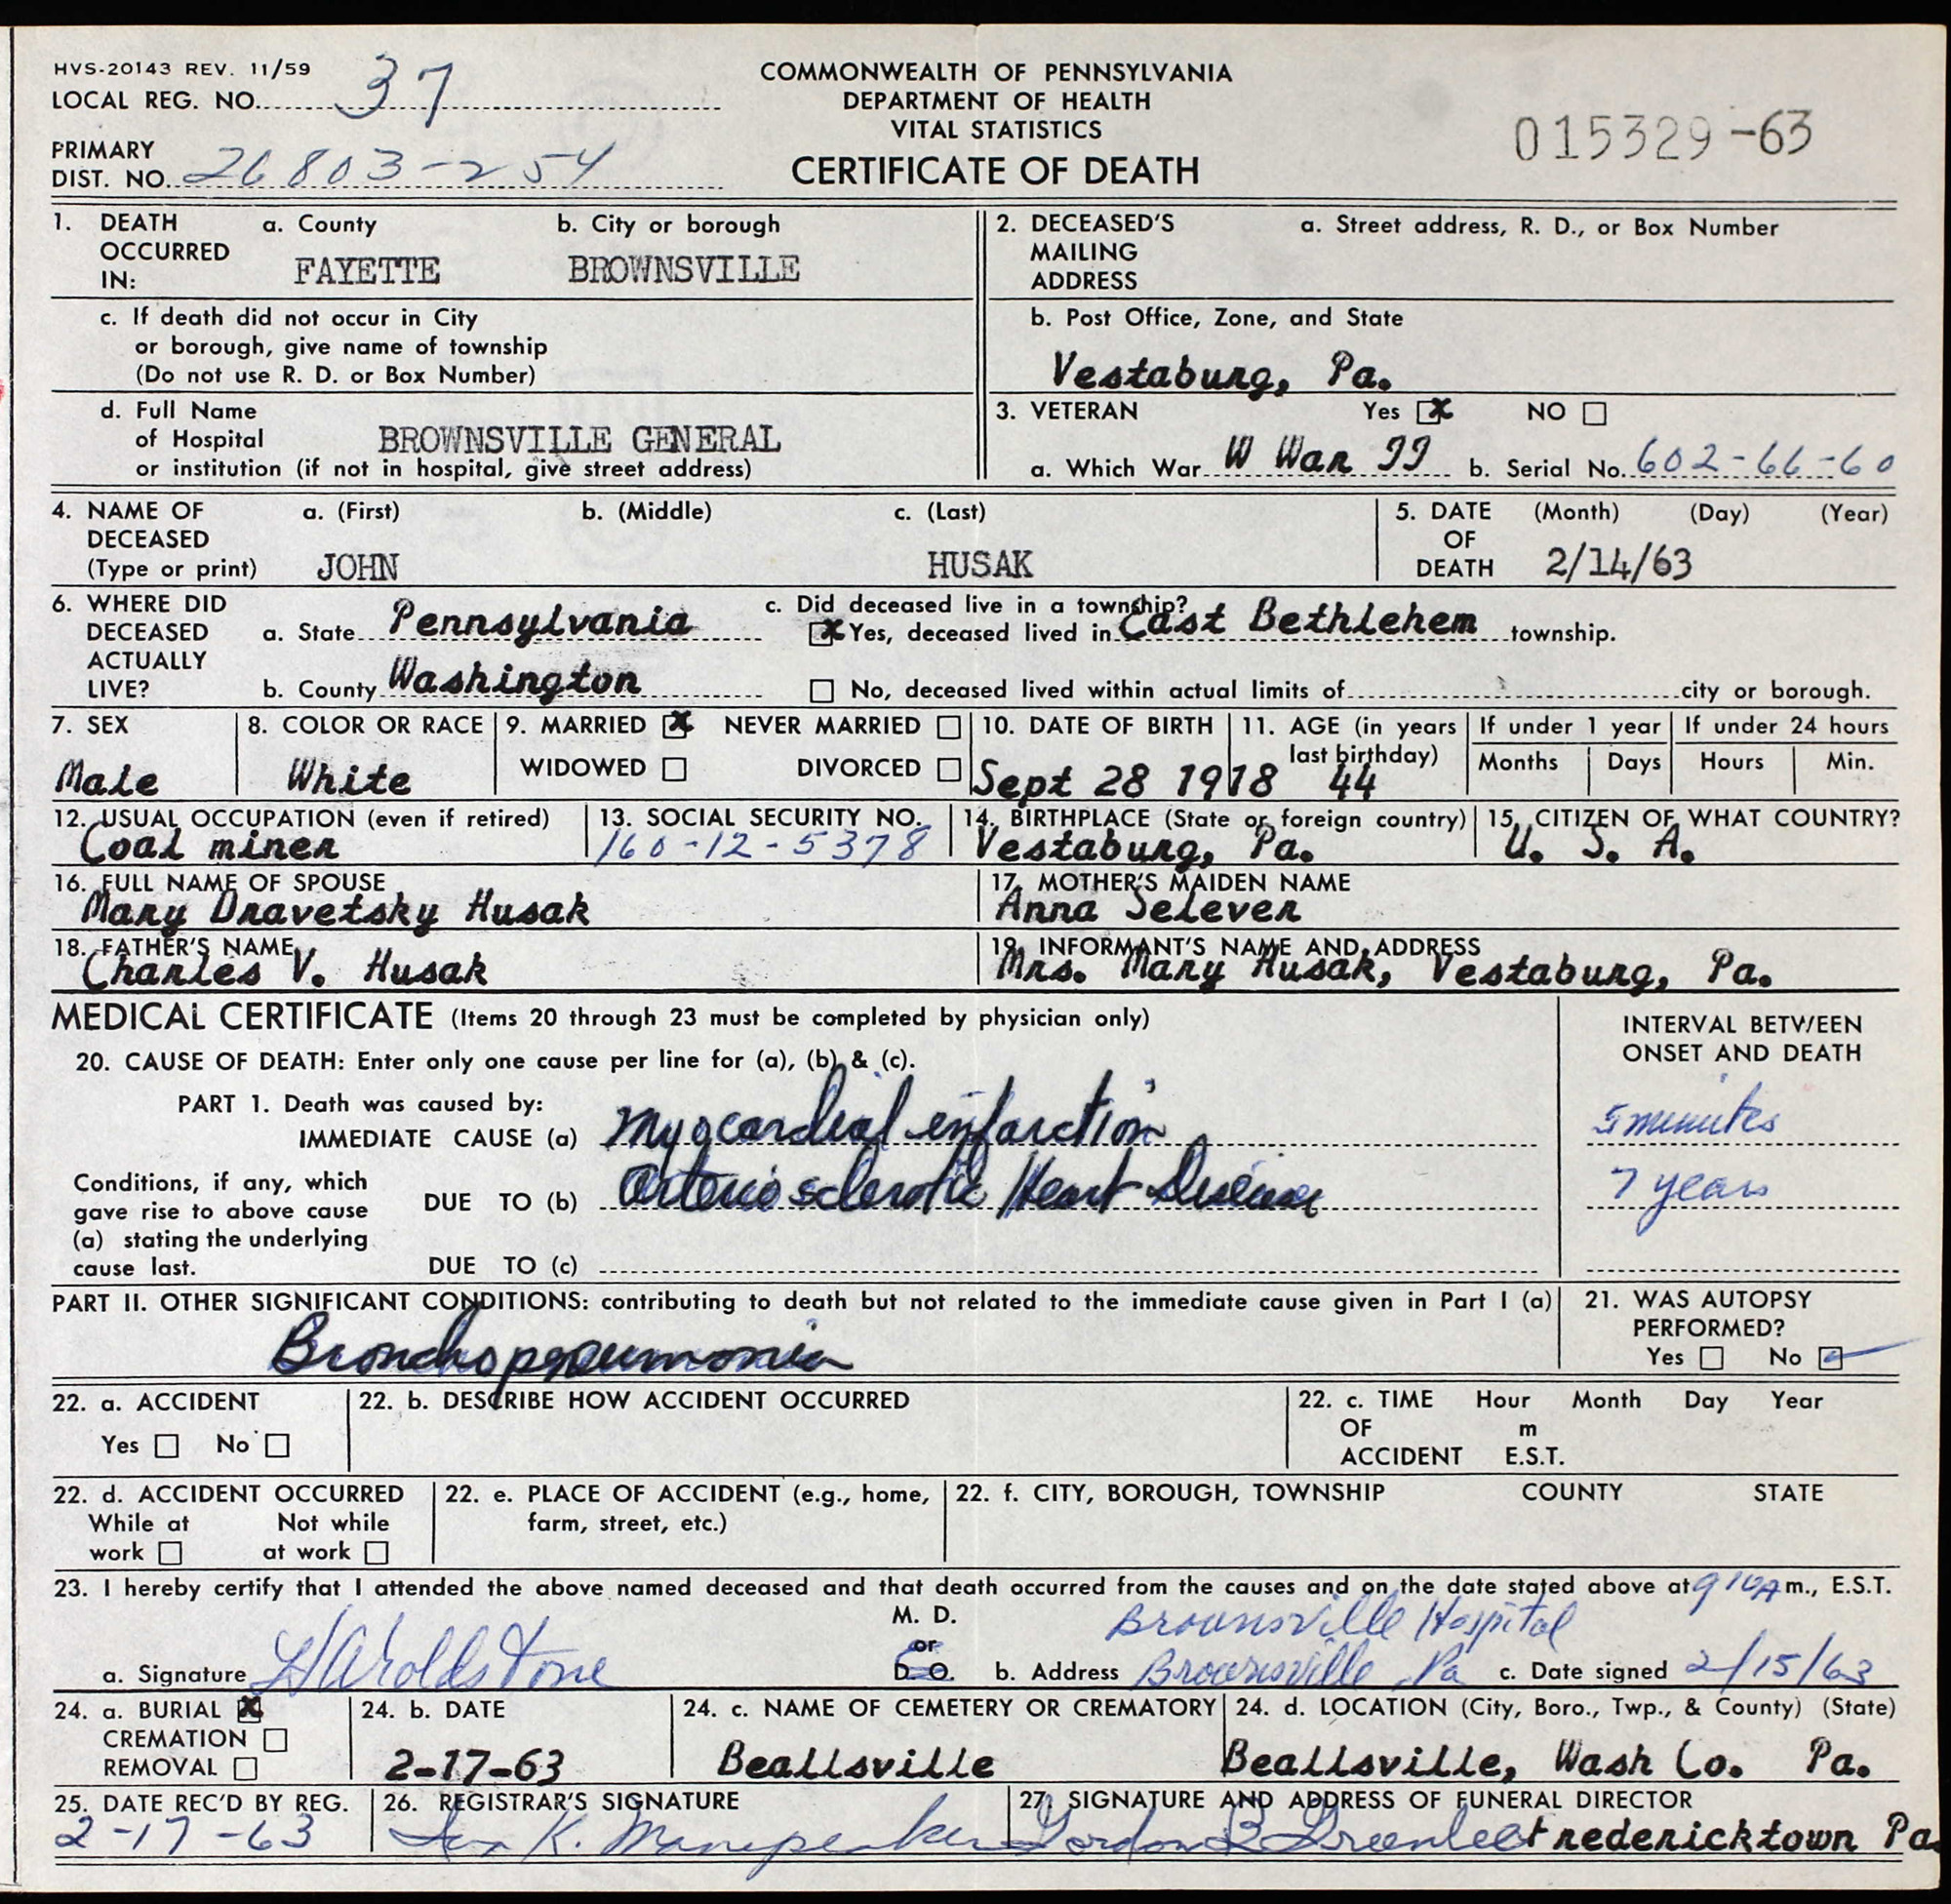 HVS-20143 REV. 11/59
LOCAL REG. NO. 37
COMMONWEALTH OF PENNSYLVANIA
DEPARTMENT OF HEALTH
VITAL STATISTICS
CERTIFICATE OF DEATH
015329-63
PRIMARY
DIST. NO. 26803-254
1. DEATH OCCURRED IN:
a. County
FAYETTE
b. City or borough
BROWNSVILLE
c. If death did not occur in City
or borough, give name of township
(Do not use R. D. or Box Number)
d. Full Name
of Hospital BROWNSVILLE GENERAL
or institution (if not in hospital, give street address)
2. DECEASED'S MAILING ADDRESS
a. Street address, R. D., or Box Number
b. Post Office, Zone, and State
Vestaburg, Pa.
3. VETERAN Yes X NO
a. Which War W War II b. Serial No. 602-66-60
4. NAME OF DECEASED (Type or print)
a. (First) b. (Middle) c. (Last)
JOHN HUSAK
5. DATE OF DEATH (Month) (Day) (Year)
2/14/63
6. WHERE DID DECEASED ACTUALLY LIVE?
a. State Pennsylvania
b. County Washington
c. Did deceased live in a township?
X Yes, deceased lived in East Bethlehem township.
No, deceased lived within actual limits of city or borough.
7. SEX
Male
8. COLOR OR RACE
White
9. MARRIED X NEVER MARRIED
WIDOWED DIVORCED
10. DATE OF BIRTH
Sept 28 1918
11. AGE (in years last birthday)
44
If under 1 year
Months Days
If under 24 hours
Hours Min.
12. USUAL OCCUPATION (even if retired)
Coal miner
13. SOCIAL SECURITY NO.
160-12-5378
14. BIRTHPLACE (State or foreign country)
Vestaburg, Pa.
15. CITIZEN OF WHAT COUNTRY?
U. S. A.
16. FULL NAME OF SPOUSE
Mary Dravetsky Husak
17. MOTHER'S MAIDEN NAME
Anna Selever
18. FATHER'S NAME
Charles V. Husak
19. INFORMANT'S NAME AND ADDRESS
Mrs. Mary Husak, Vestaburg, Pa.
MEDICAL CERTIFICATE (Items 20 through 23 must be completed by physician only)
INTERVAL BETWEEN
ONSET AND DEATH
20. CAUSE OF DEATH: Enter only one cause per line for (a), (b) & (c).
PART 1. Death was caused by:
IMMEDIATE CAUSE (a) Myocardial infarction 5 minutes
Conditions, if any, which
gave rise to above cause
(a) stating the underlying
cause last.
DUE TO (b) Arteriosclerotic Heart Disease 7 years
DUE TO (c)
PART II. OTHER SIGNIFICANT CONDITIONS: contributing to death but not related to the immediate cause given in Part I (a)
Bronchopneumonia
21. WAS AUTOPSY
PERFORMED?
Yes No
22. a. ACCIDENT
Yes No
22. b. DESCRIBE HOW ACCIDENT OCCURRED
22. c. TIME OF ACCIDENT Hour Month Day Year
m
E.S.T.
22. d. ACCIDENT OCCURRED
While at work Not while at work
22. e. PLACE OF ACCIDENT (e.g., home,
farm, street, etc.)
22. f. CITY, BOROUGH, TOWNSHIP COUNTY STATE
23. I hereby certify that I attended the above named deceased and that death occurred from the causes and on the date stated above at 910A m., E.S.T.
a. Signature
M. D.
or
D. O.
Brownsville Hospital
b. Address Brownsville Pa
c. Date signed 2/15/63
24. a. BURIAL X
CREMATION
REMOVAL
24. b. DATE
2-17-63
24. c. NAME OF CEMETERY OR CREMATORY
Beallsville
24. d. LOCATION (City, Boro., Twp., & County) (State)
Beallsville, Wash Co. Pa.
25. DATE REC'D BY REG.
2-17-63
26. REGISTRAR'S SIGNATURE
27. SIGNATURE AND ADDRESS OF FUNERAL DIRECTOR
Gordon B Greenlee Fredericktown Pa.